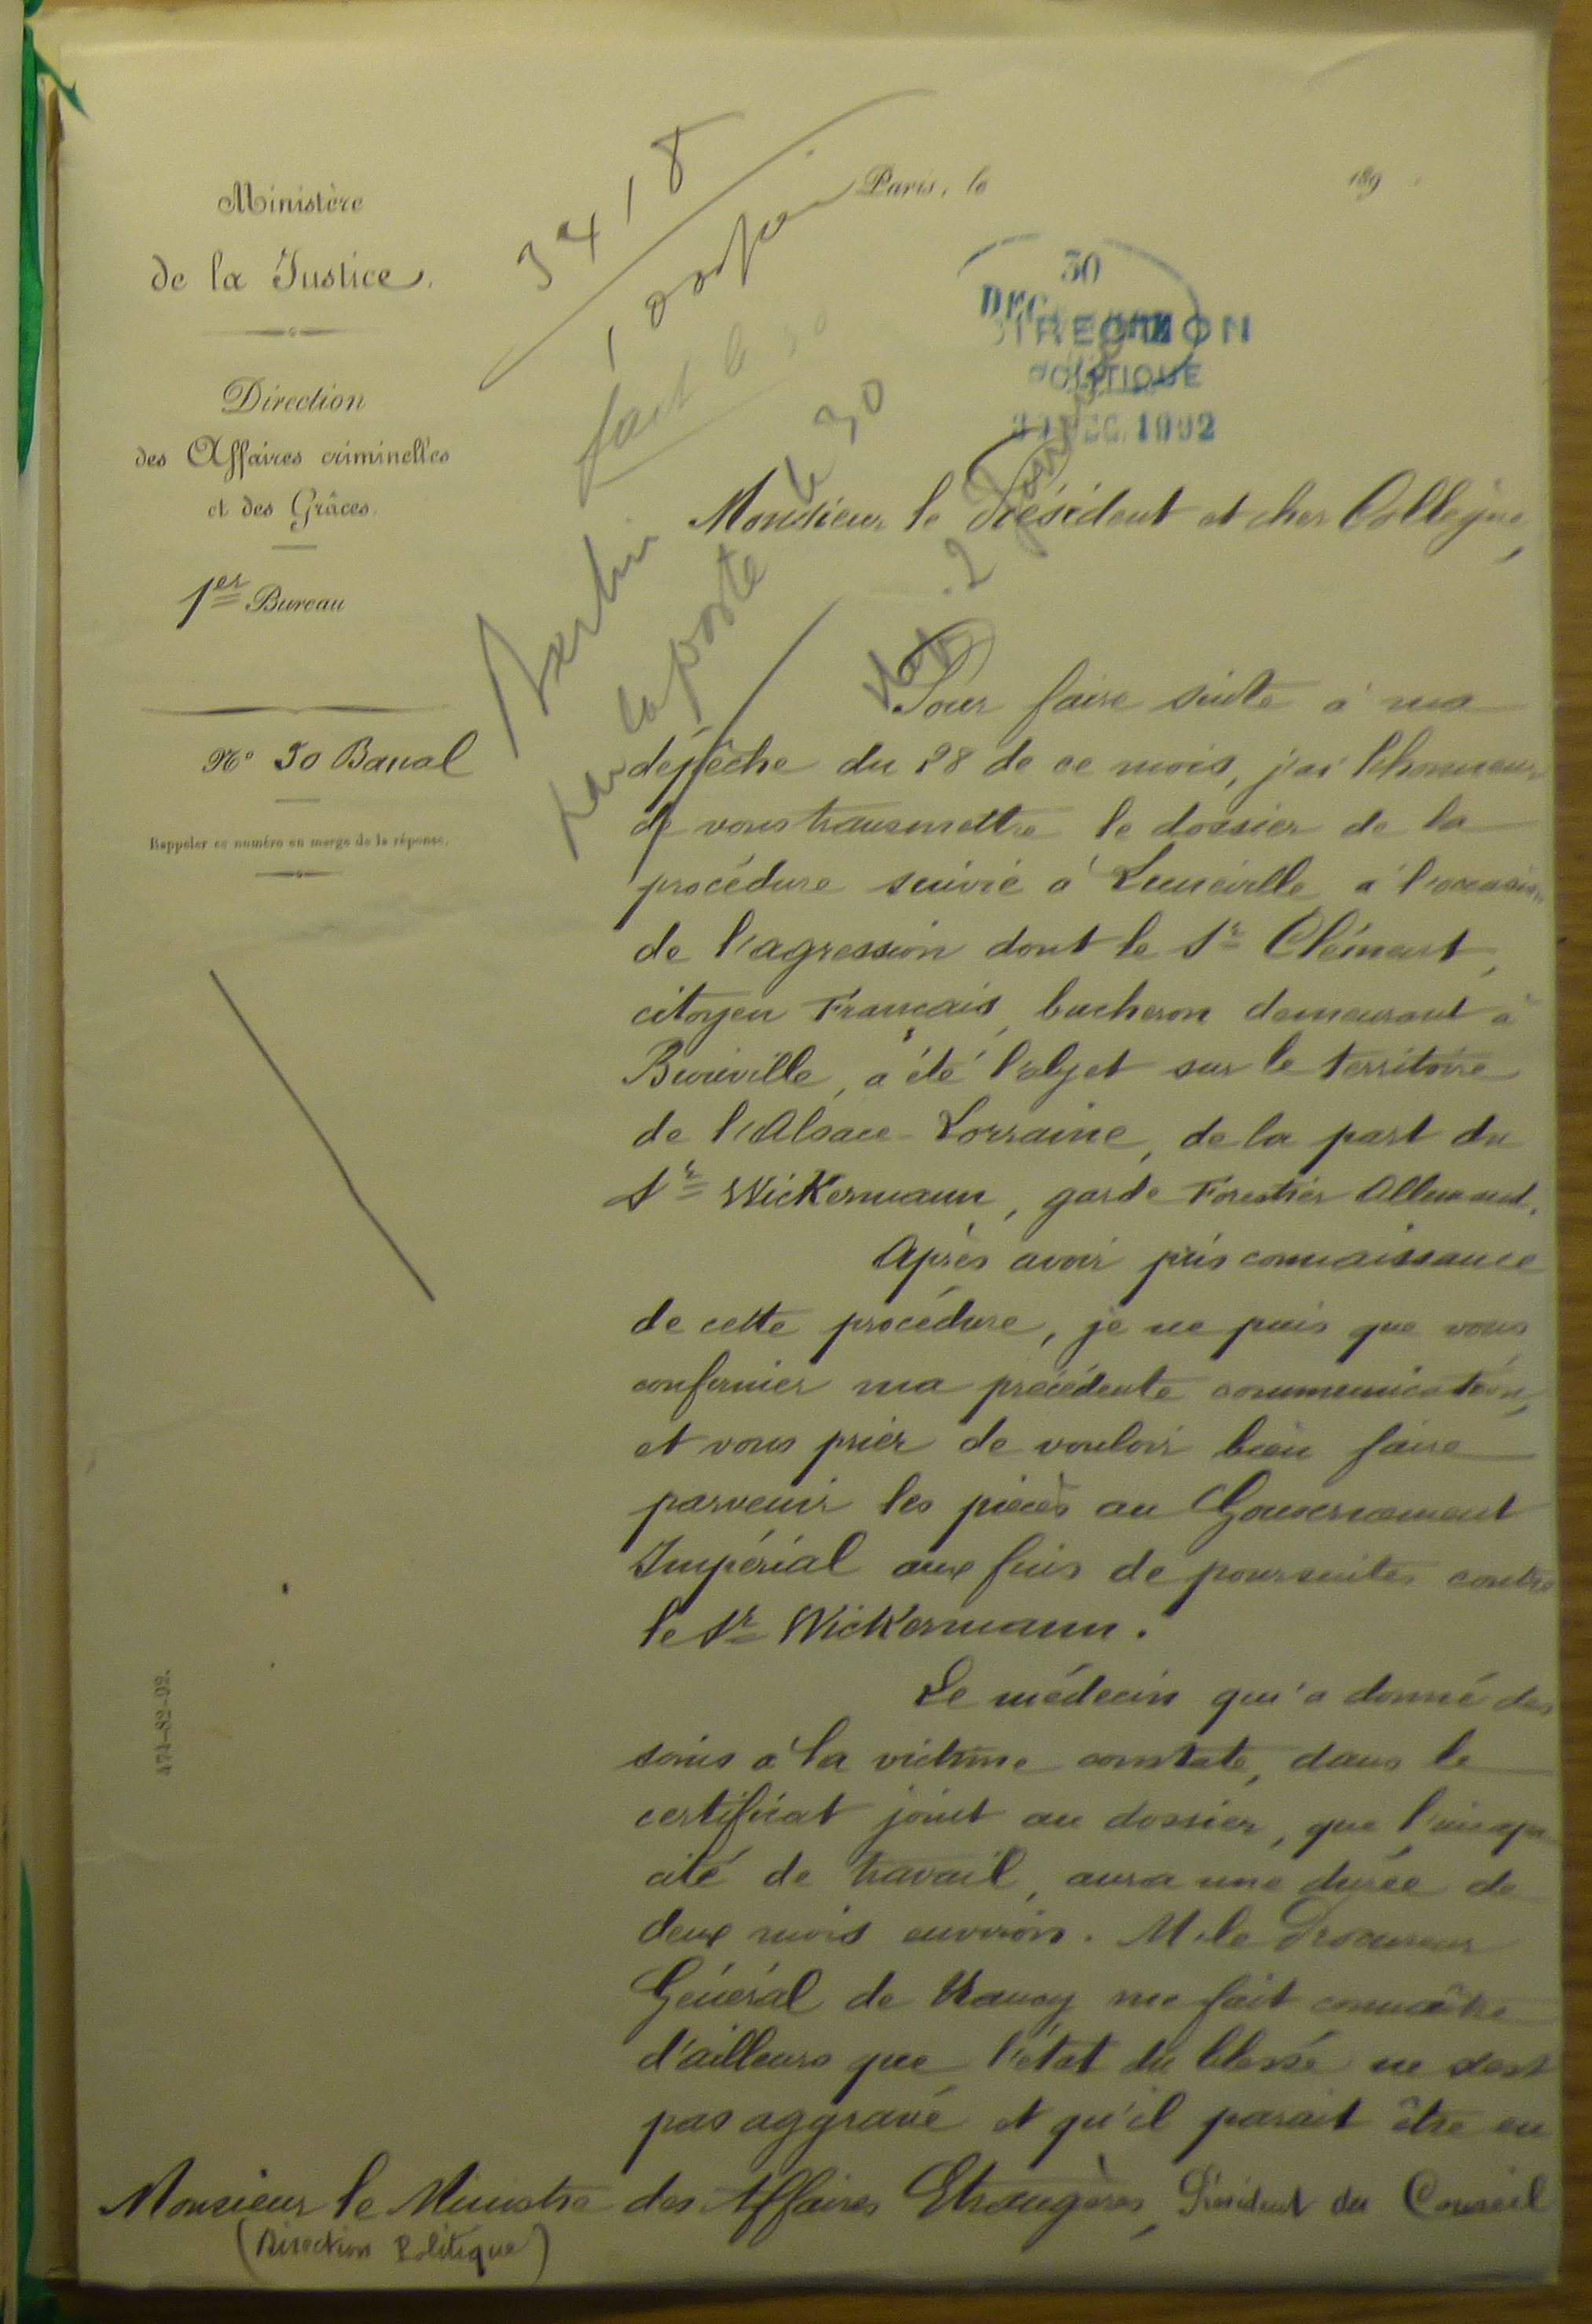 Ministère
de la Justice.
Direction
des Affaires criminelles
et des Grâces.
1er Bureau
N° 50 Banal
Rappeler ce numéro en marge de la réponse.
474-82-92.
Paris, le 189
30
DEC
DIRECTION
POLITIQUE
DEC. 1892
fait le 30
Berlin
par la poste
le 30
Monsieur le Président et cher Collègue,
Pour faire suite à ma
dépêche du 28 de ce mois, j'ai l'honneur
de vous transmettre le dossier de la
procédure suivie à Lunéville à l'occasion
de l'agression dont le Sr Clément,
citoyen Français, bucheron demeurant à
Bionville, a été l'objet sur le territoire
de l'Alsace-Lorraine, de la part du
Sr Wickermann, garde Forestier Allemand.
Après avoir pris connaissance
de cette procédure, je ne puis que vous
confirmer ma précédente communication,
et vous prier de vouloir bien faire
parvenir les pièces au Gouvernement
Impérial aux fins de poursuites contre
le Sr Wickermann.
Le médecin qui a donné des
soins à la victime constate, dans le
certificat joint au dossier, que l'incapa
cité de travail, aura une durée de
deux mois environ. M. le Procureur
Général de Nancy me fait connaître
d'ailleurs que l'état du blessé ne s'est
pas aggravé et qu'il parait être en
Monsieur le Ministre des Affaires Etrangères, Président du Conseil
(Direction Politique)